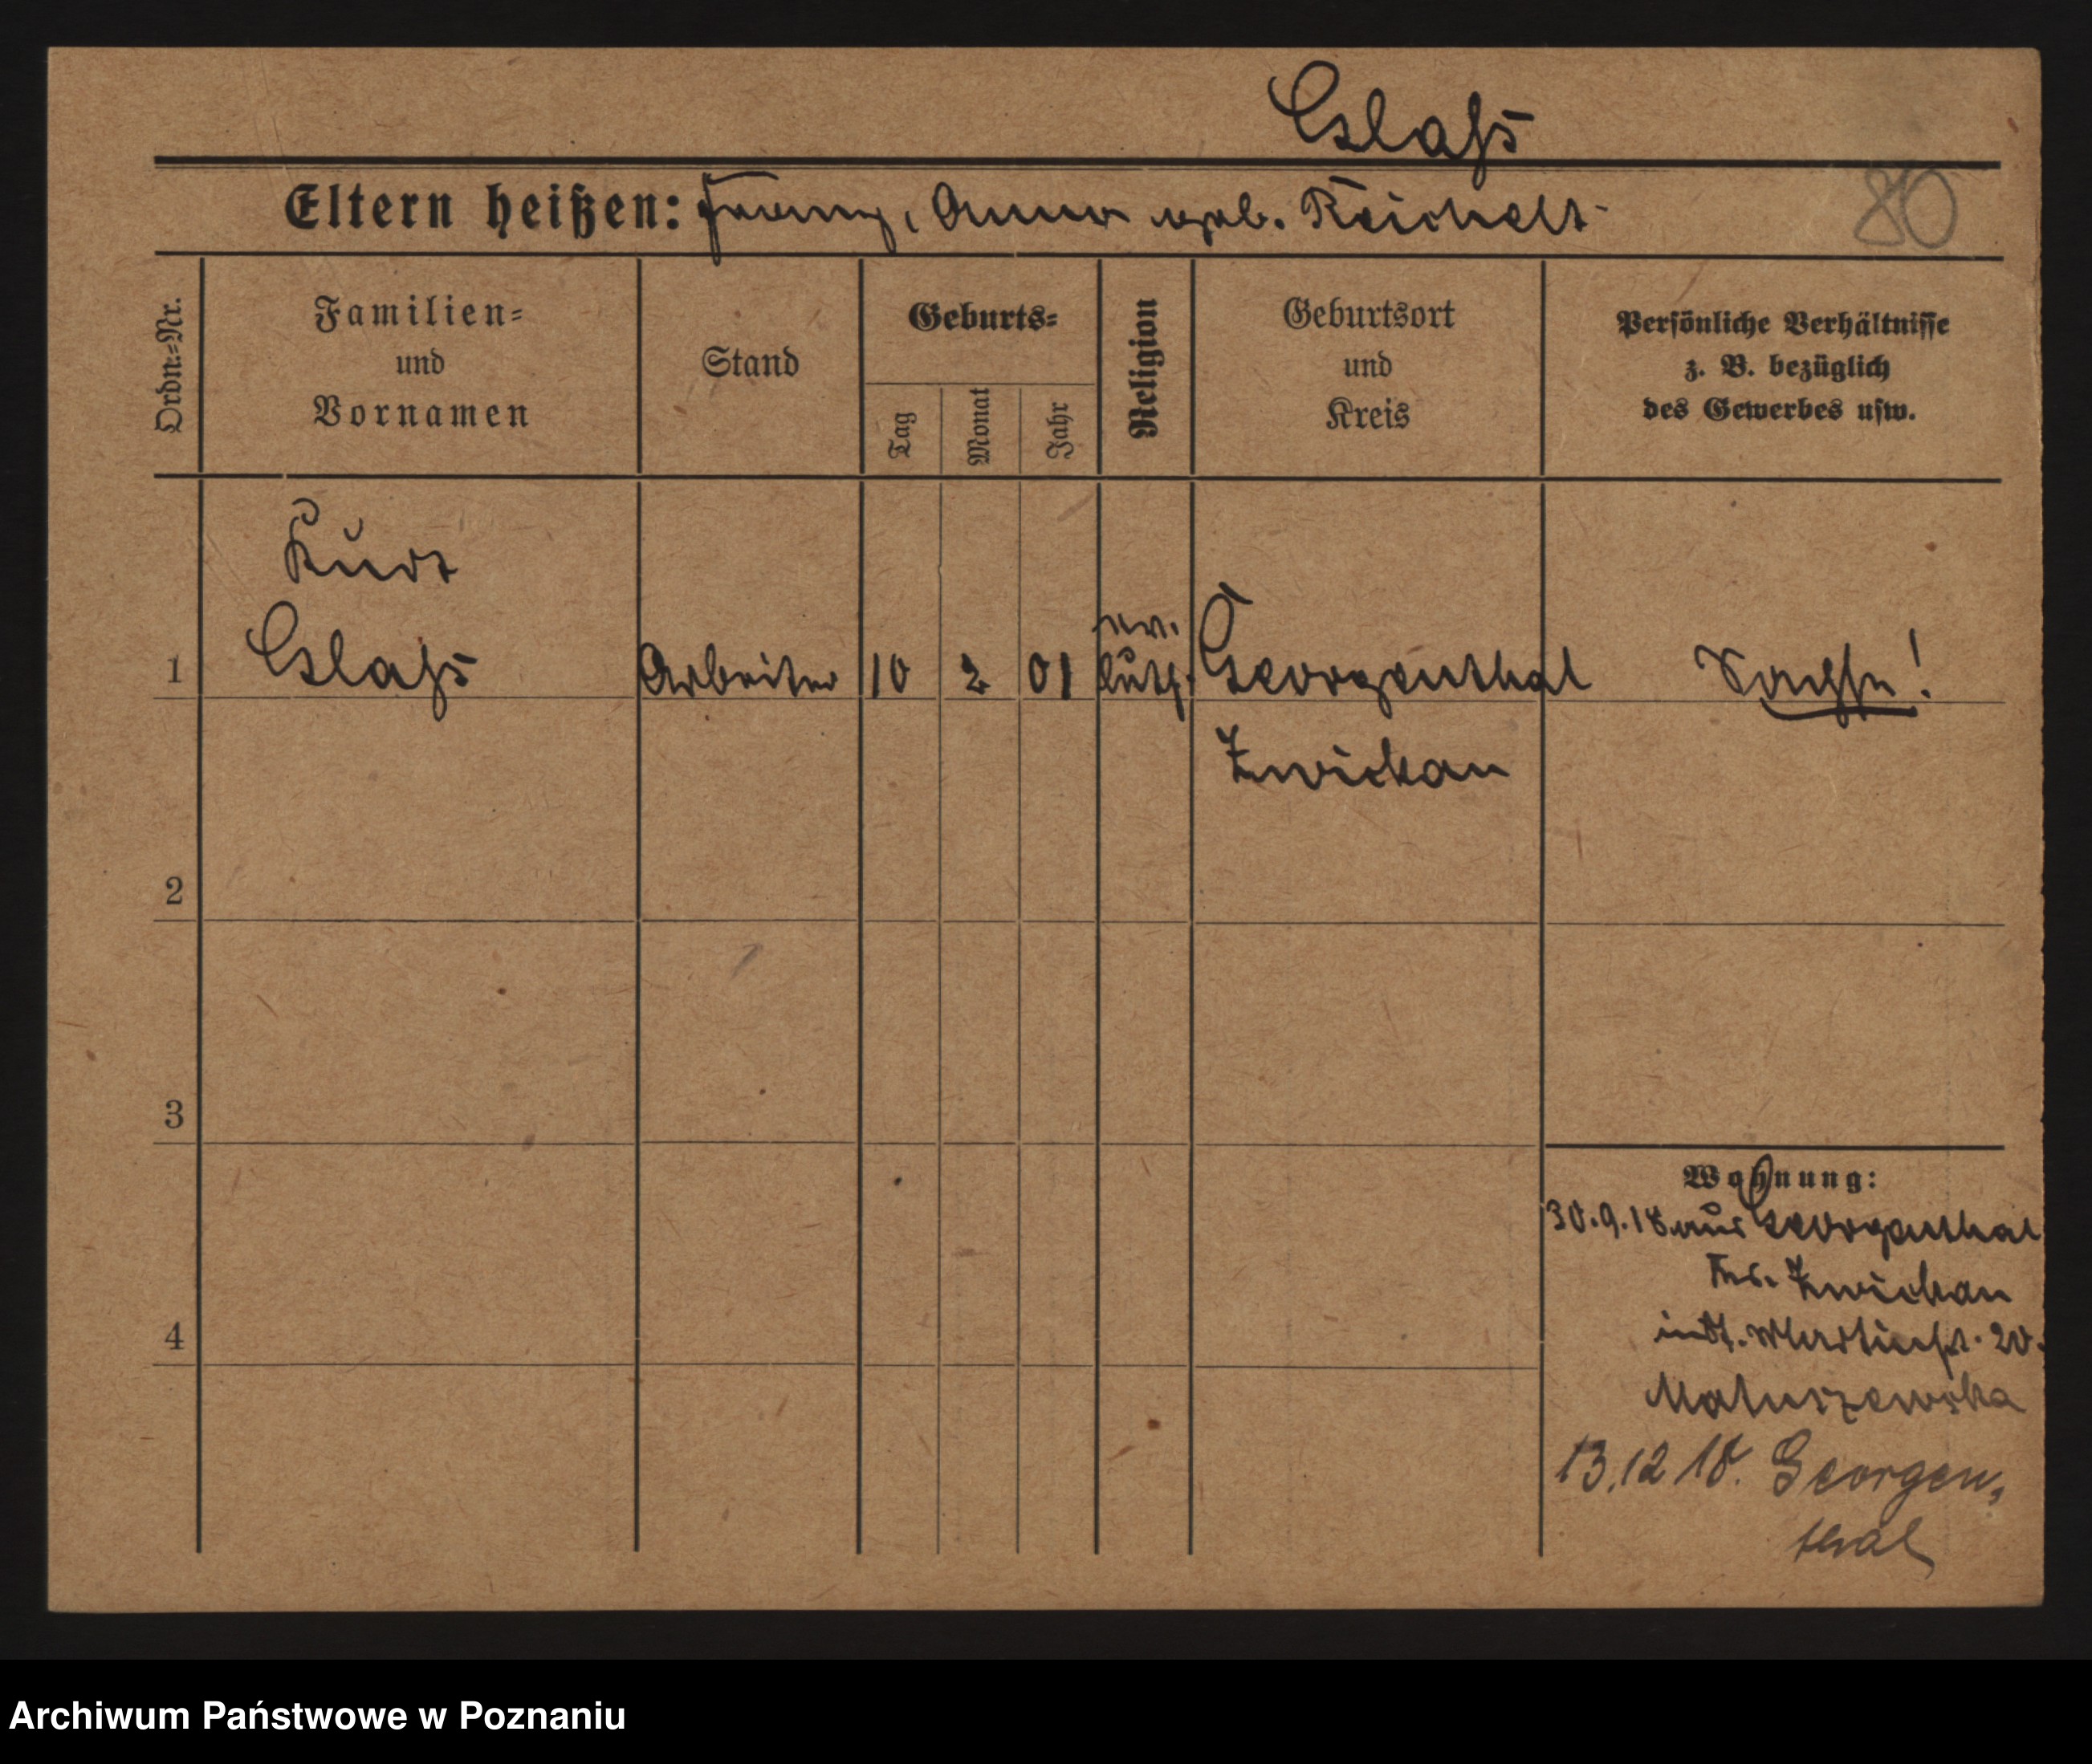 Glaß
Eltern heißen: Franz, Anna geb. Reichelt
80
Ordn.=Nr.
Familien=
und
Vornamen
Stand
Geburts=
Tag
Monat
Jahr
Religion
Geburtsort
und
Kreis
Persönliche Verhältnisse
z. B. bezüglich
des Gewerbes usw.
Kurt
1 Glaß Arbeiter 10 2 01 ev. luth. Georgenthal Sachse!
Zwickau
2
3
Wohnung:
30.9.18 aus Georgenthal
Krs. Zwickau
4
Martinstr. 20.
Matuszewska
13.12 18. Georgen-
thal
Archiwum Państwowe w Poznaniu